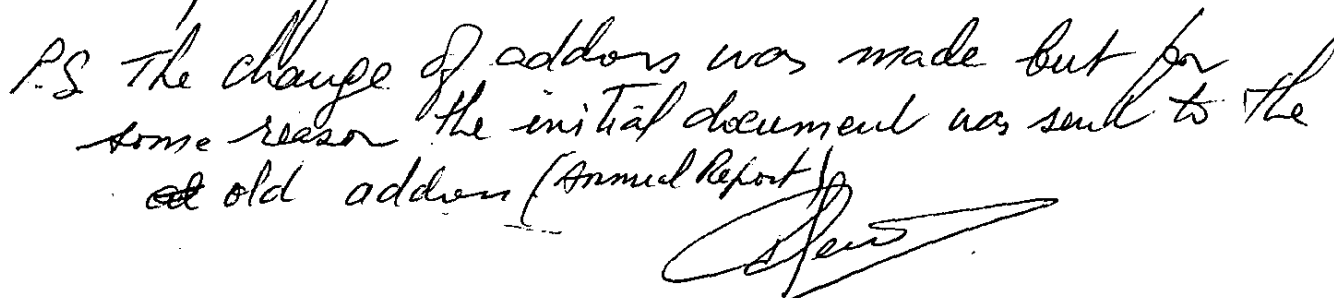 P.S The change of address was made but for
some reason the initial document was sent to the
old address (Annual Report)